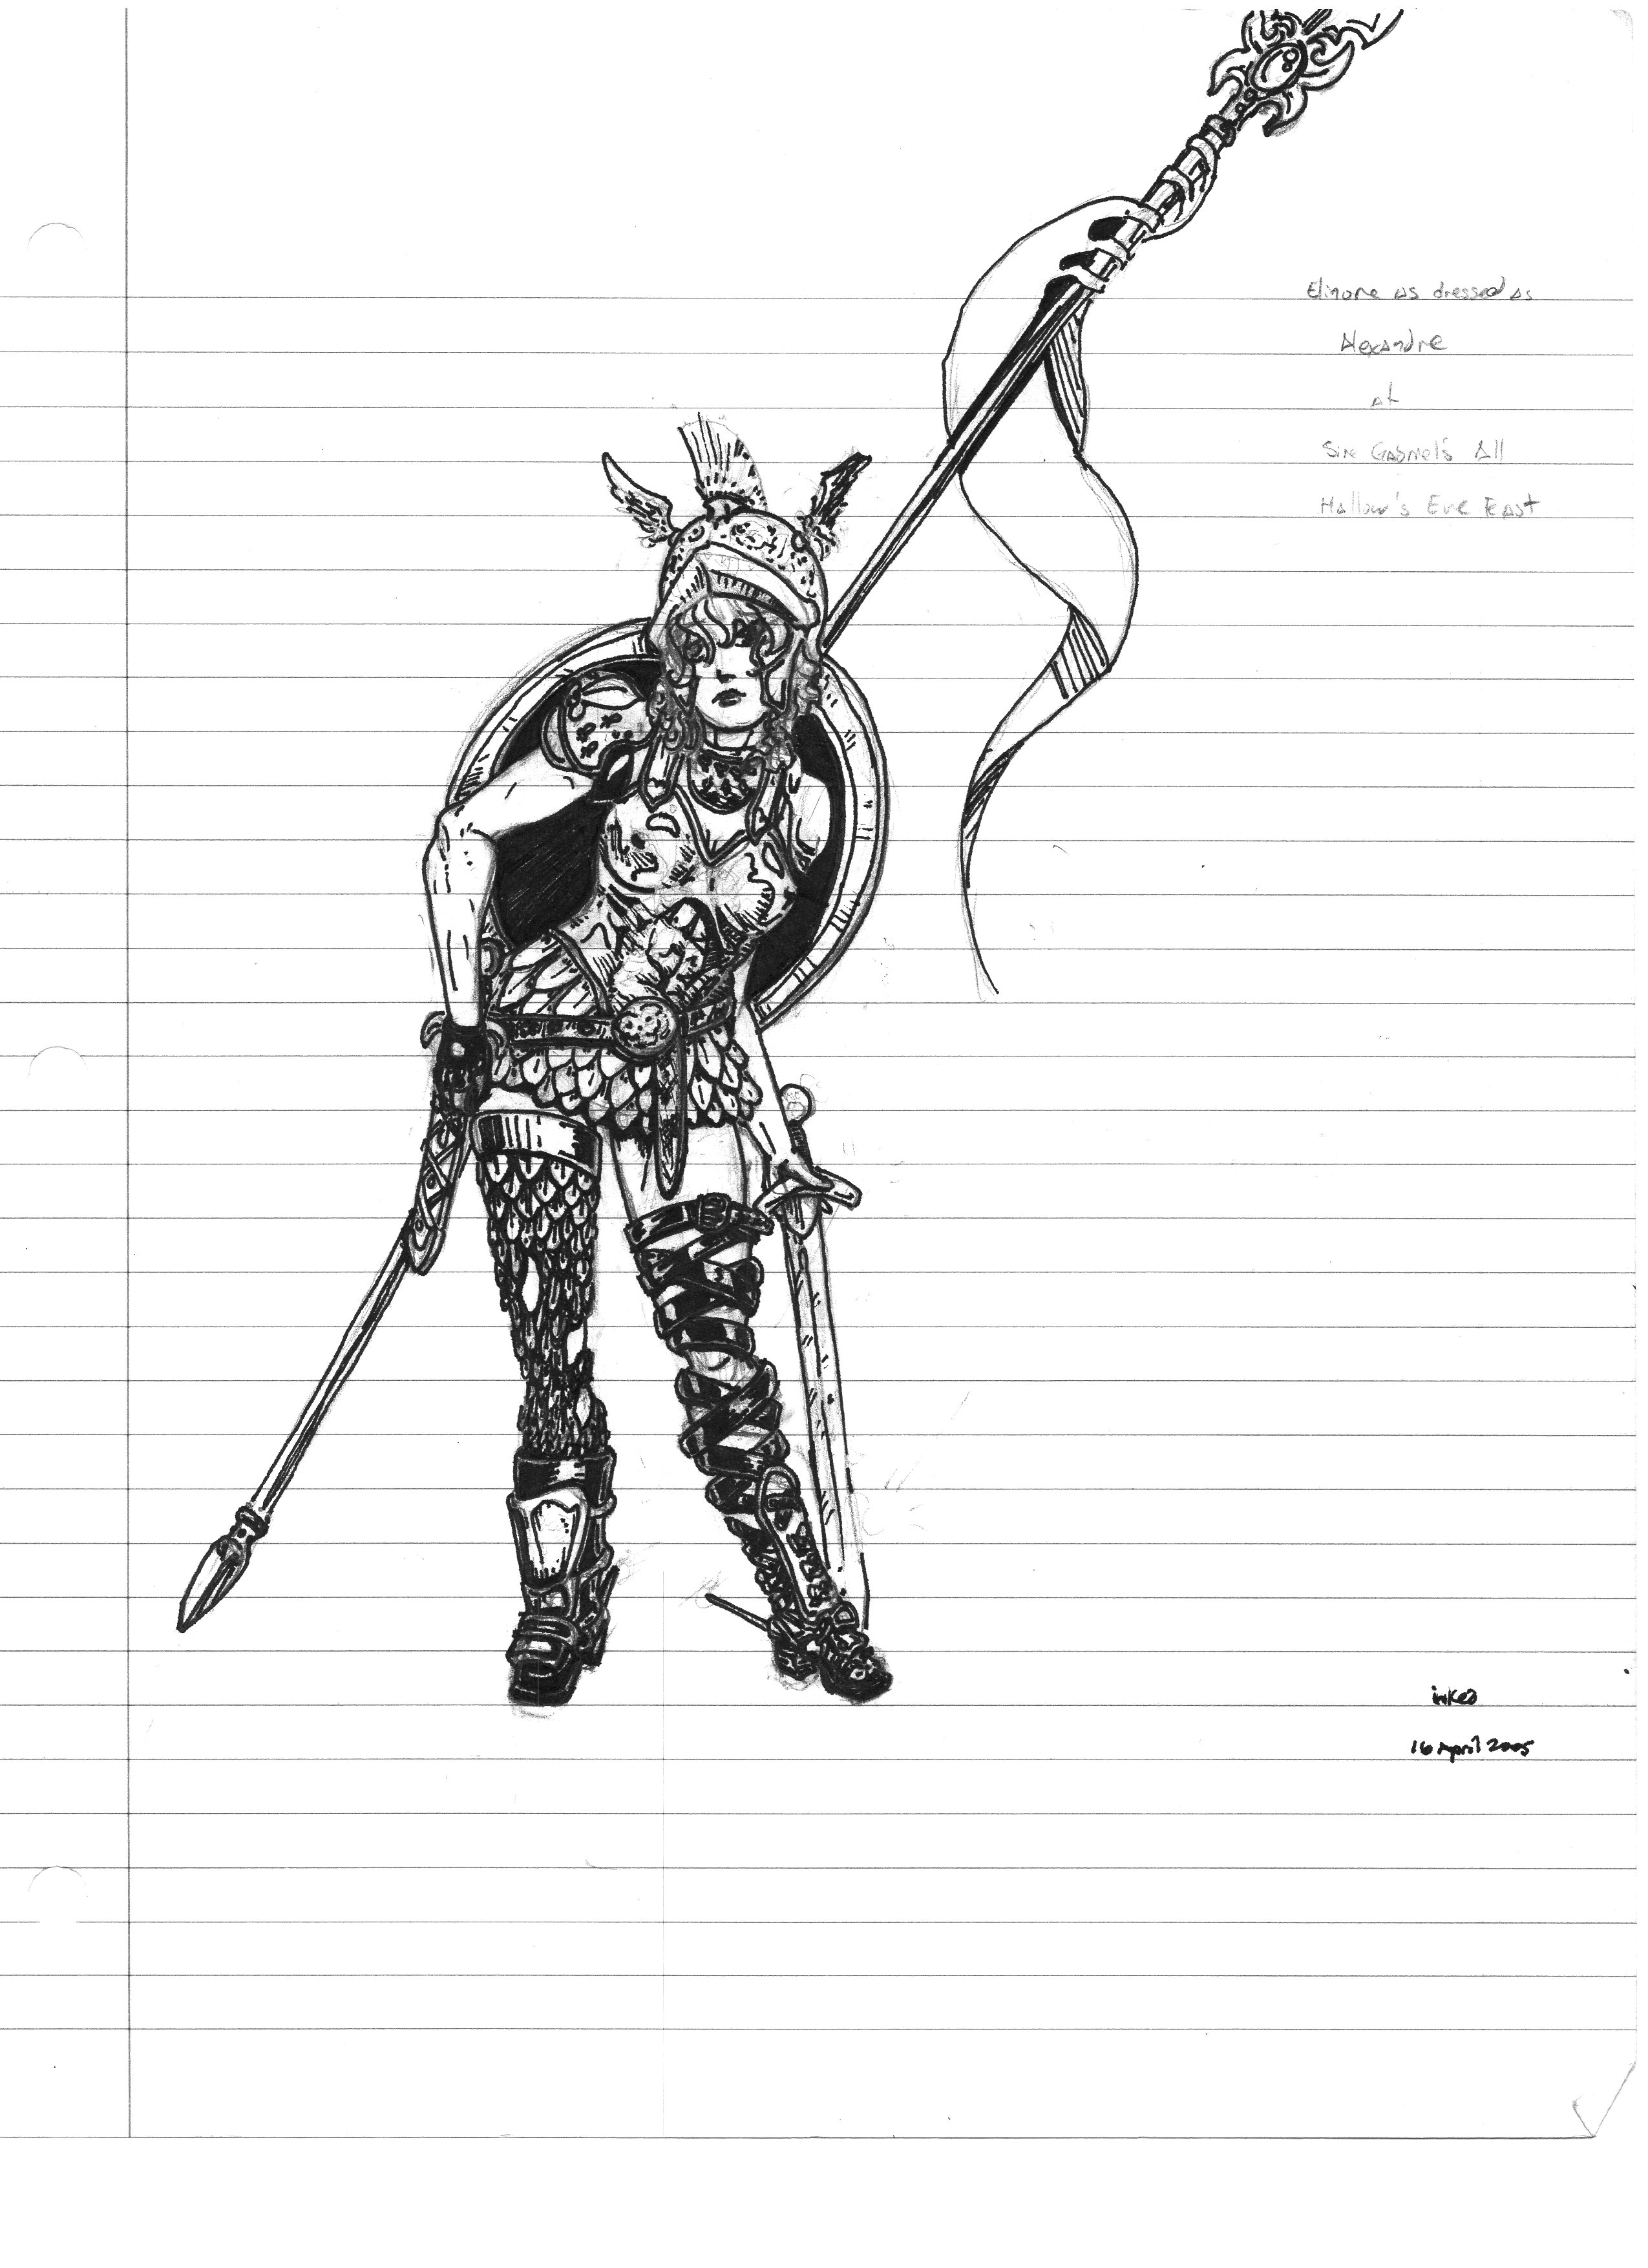 Elinore as dressed as
Alexandre
at
Sire Gabriel's All
Hallow's Eve Feast
inked
16 April 2005